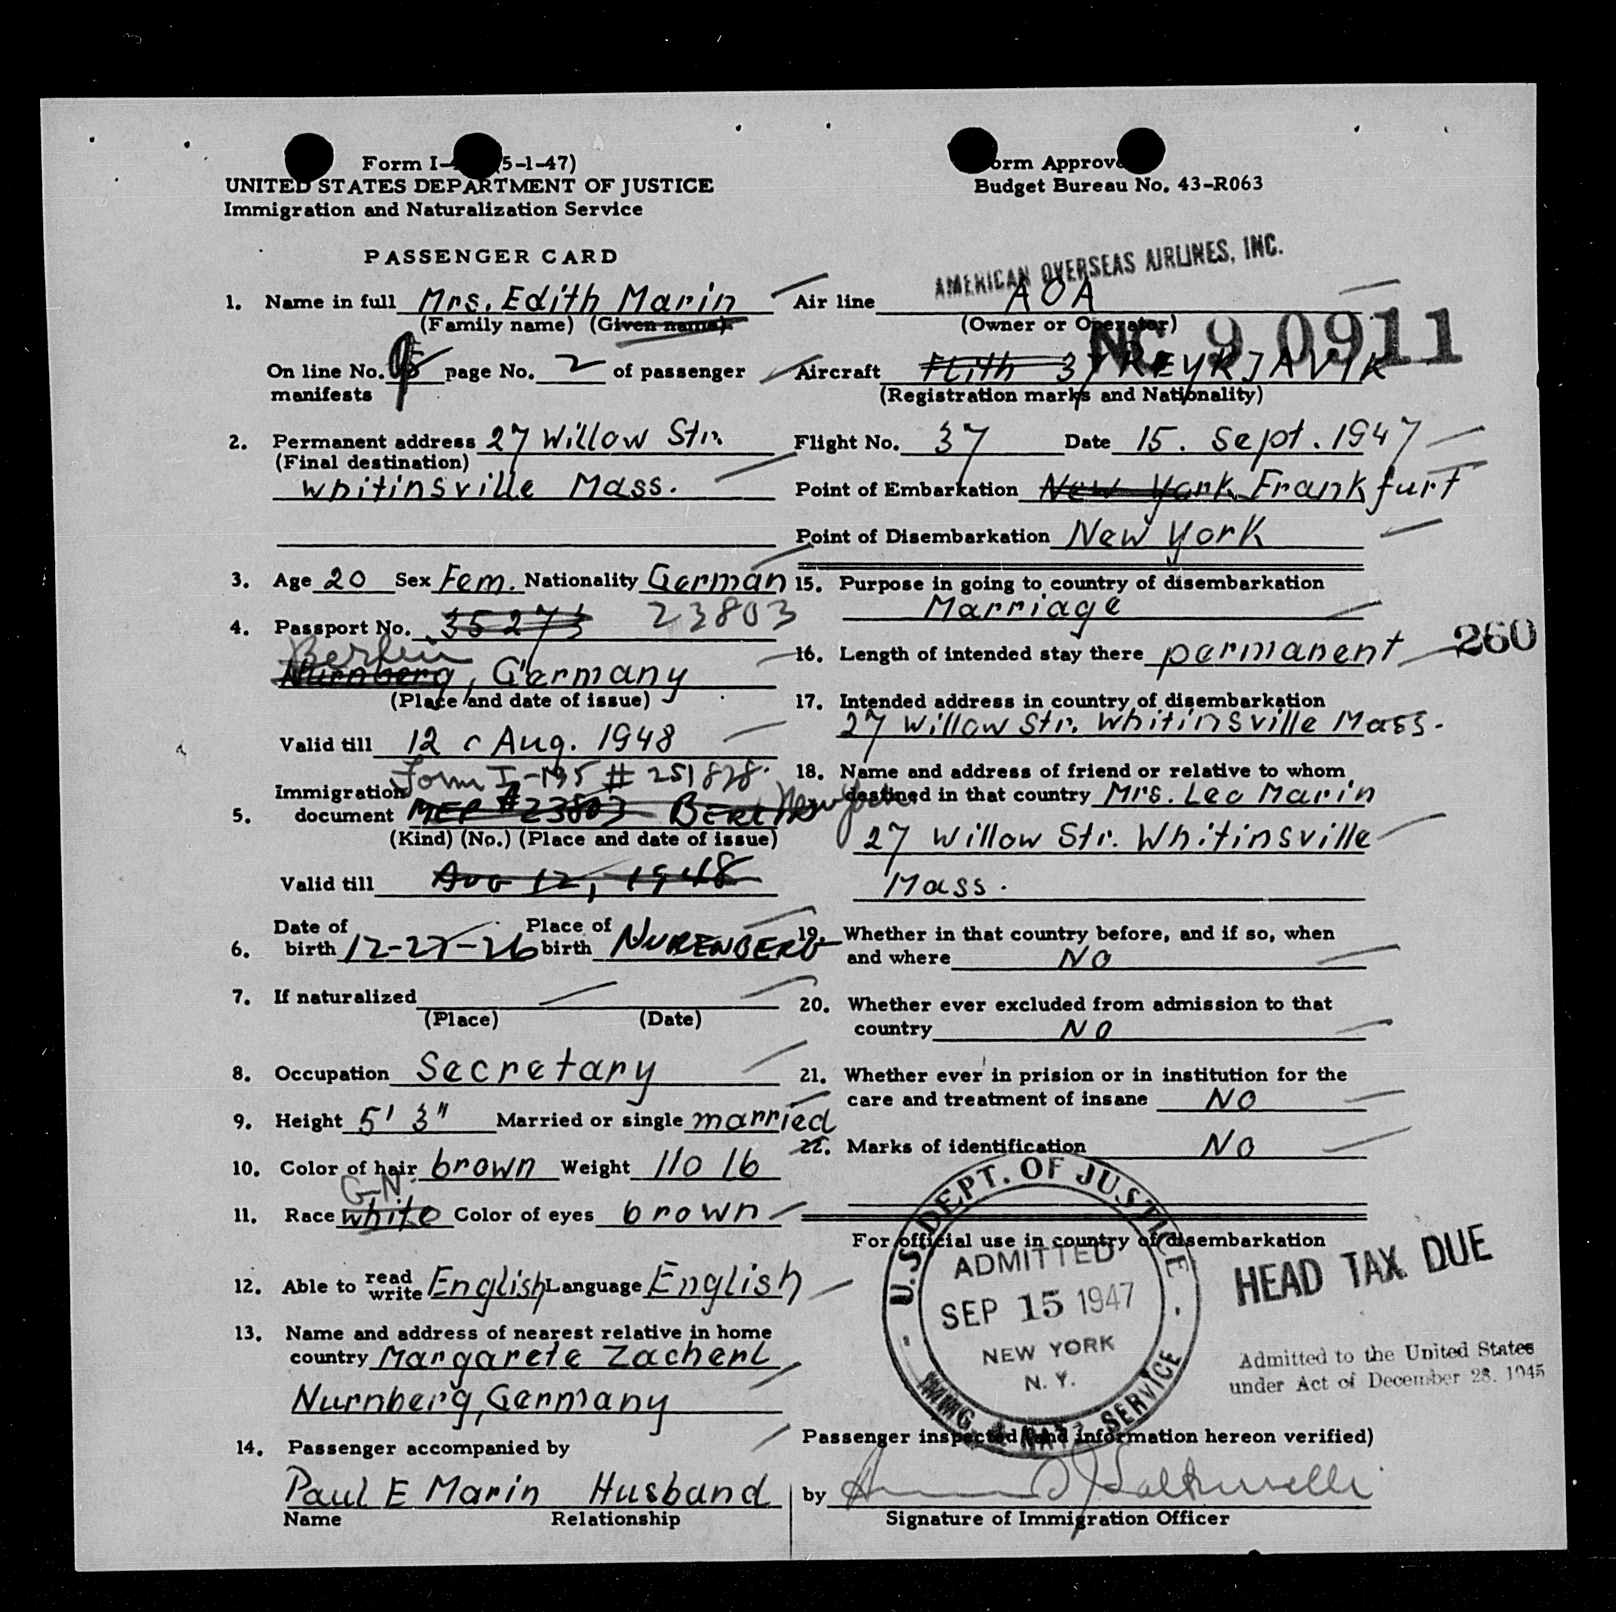 Form I- (5-1-47)
UNITED STATES DEPARTMENT OF JUSTICE
Immigration and Naturalization Service
PASSENGER CARD
1. Name in full Mrs. Edith Marin
(Family name) (Given name)
On line No. page No. 2 of passenger
manifests
2. Permanent address 27 Willow Str.
(Final destination)
Whitinsville Mass.
3. Age 20 Sex Fem. Nationality German
4. Passport No. 35273 23803
Berlin
Nurnberg, Germany
(Place and date of issue)
Valid till 12 Aug. 1948
Form I-195 # 251828
Immigration
5. document MEP # 23803 BERLIN New York
(Kind) (No.) (Place and date of issue)
Valid till AUG 12, 1948
Date of Place of
6. birth 12-27-26 birth NURENBERG
7. If naturalized
(Place) (Date)
8. Occupation Secretary
9. Height 5' 3" Married or single married
10. Color of hair brown Weight 110 lb
G.N.
11. Race white Color of eyes brown
12. Able to read write English Language English
13. Name and address of nearest relative in home
country Margarete Zacherl
Nurnberg, Germany
14. Passenger accompanied by
Paul E Marin Husband
Name Relationship
orm Approve
Budget Bureau No. 43-R063
AMERICAN OVERSEAS AIRLINES, INC.
Air line AOA
(Owner or Operator)
NC 90911
Aircraft REYKJAVIK
(Registration marks and Nationality)
Flight No. 37 Date 15. Sept. 1947
Point of Embarkation New York Frankfurt
Point of Disembarkation New York
15. Purpose in going to country of disembarkation
Marriage
16. Length of intended stay there permanent
260
17. Intended address in country of disembarkation
27 Willow Str. Whitinsville Mass.
18. Name and address of friend or relative to whom
destined in that country Mrs. Leo Marin
27 Willow Str. Whitinsville
Mass.
19. Whether in that country before, and if so, when
and where NO
20. Whether ever excluded from admission to that
country NO
21. Whether ever in prision or in institution for the
care and treatment of insane NO
22. Marks of identification NO
For official use in country of disembarkation
U.S. DEPT. OF JUSTICE
ADMITTED
SEP 15 1947
NEW YORK
N. Y.
IMMIG. & NAT. SERVICE
HEAD TAX DUE
Admitted to the United States
under Act of December 28, 1945
Passenger inspected (and information hereon verified)
by
Signature of Immigration Officer